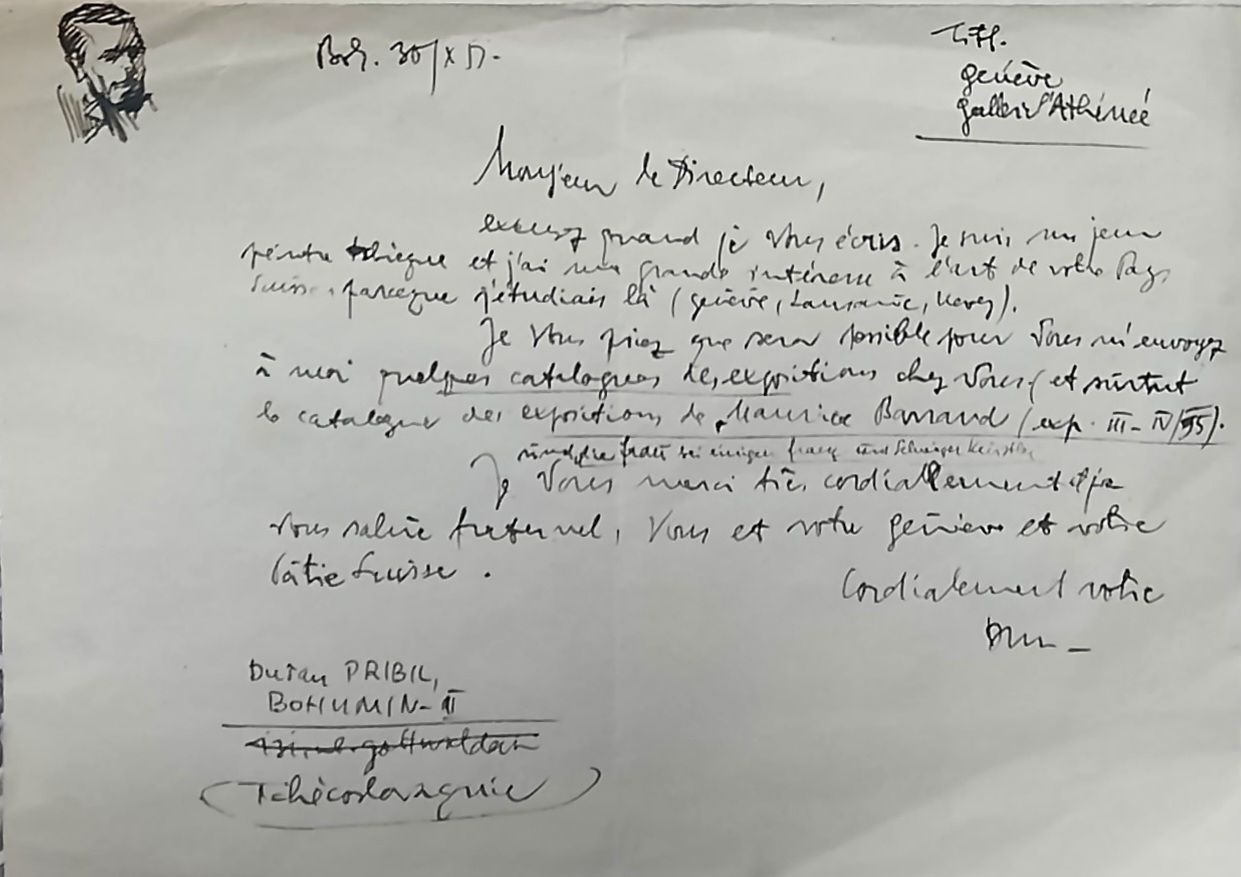 Boh. 30/X 57.
Titl.
genève
gallerie d'Athéneé
Monsieur le Directeur,
excusez quand je Vous écris. Je suis un jeun
peintre tchèque et j'ai une grande intéresse à l'art de votre Pays
Suisse, parceque j'étudiais là (genève, Lausanne, Vevey).
Je Vous priez que sera possible pour Vous m'envoyez
à moi quelques catalogues des expositions chez Vous (et surtout
le catalogue des expositions de Maurice Barraud (exp. III-IV/55).
Je Vous merci très cordiallement et je
Vous salue fraternel, Vous et votre genève et votre
Pâtie Suisse.
Cordialement votre
Dušan PRIBIL,
BOHUMIN-II
gottwaldova
Tchécoslovaquie